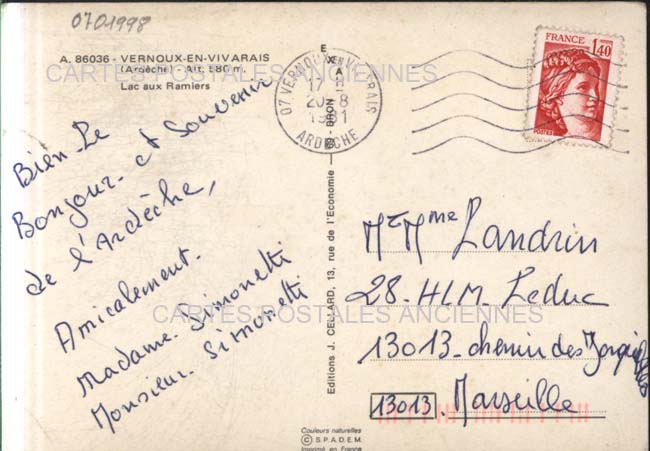 0701998
A. 86036 - VERNOUX-EN-VIVARAIS
(Ardèche) - Alt. 580 m.
Lac aux Ramiers
CARTES POSTALES ANCIENNES
Bien Le
Bonjour et Souvenir
de l'Ardèche,
Amicalement.
Madame. Simonetti
Monsieur. Simonetti
CARTES POSTALES ANCIENNES
EXA - BRON
Editions J. CELLARD, 13, rue de l'Economie
07 VERNOUX EN VIVARAIS
20-8
1981
ARDECHE
FRANCE
1,40
POSTES
Mr Mme Landrin
28. HLM. Leduc
13013. chemin des
13013. Marseille
Couleurs naturelles
© S.P.A.D.E.M.
Imprimé en France